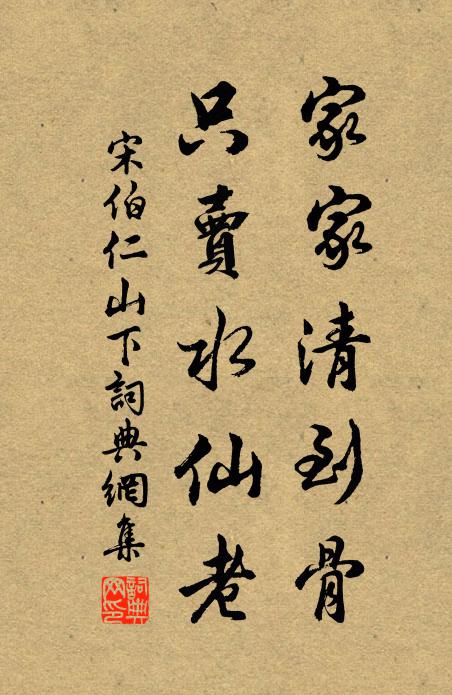 家家清到骨
只賣水仙老
宋伯仁山下詞典網集
詞典网印